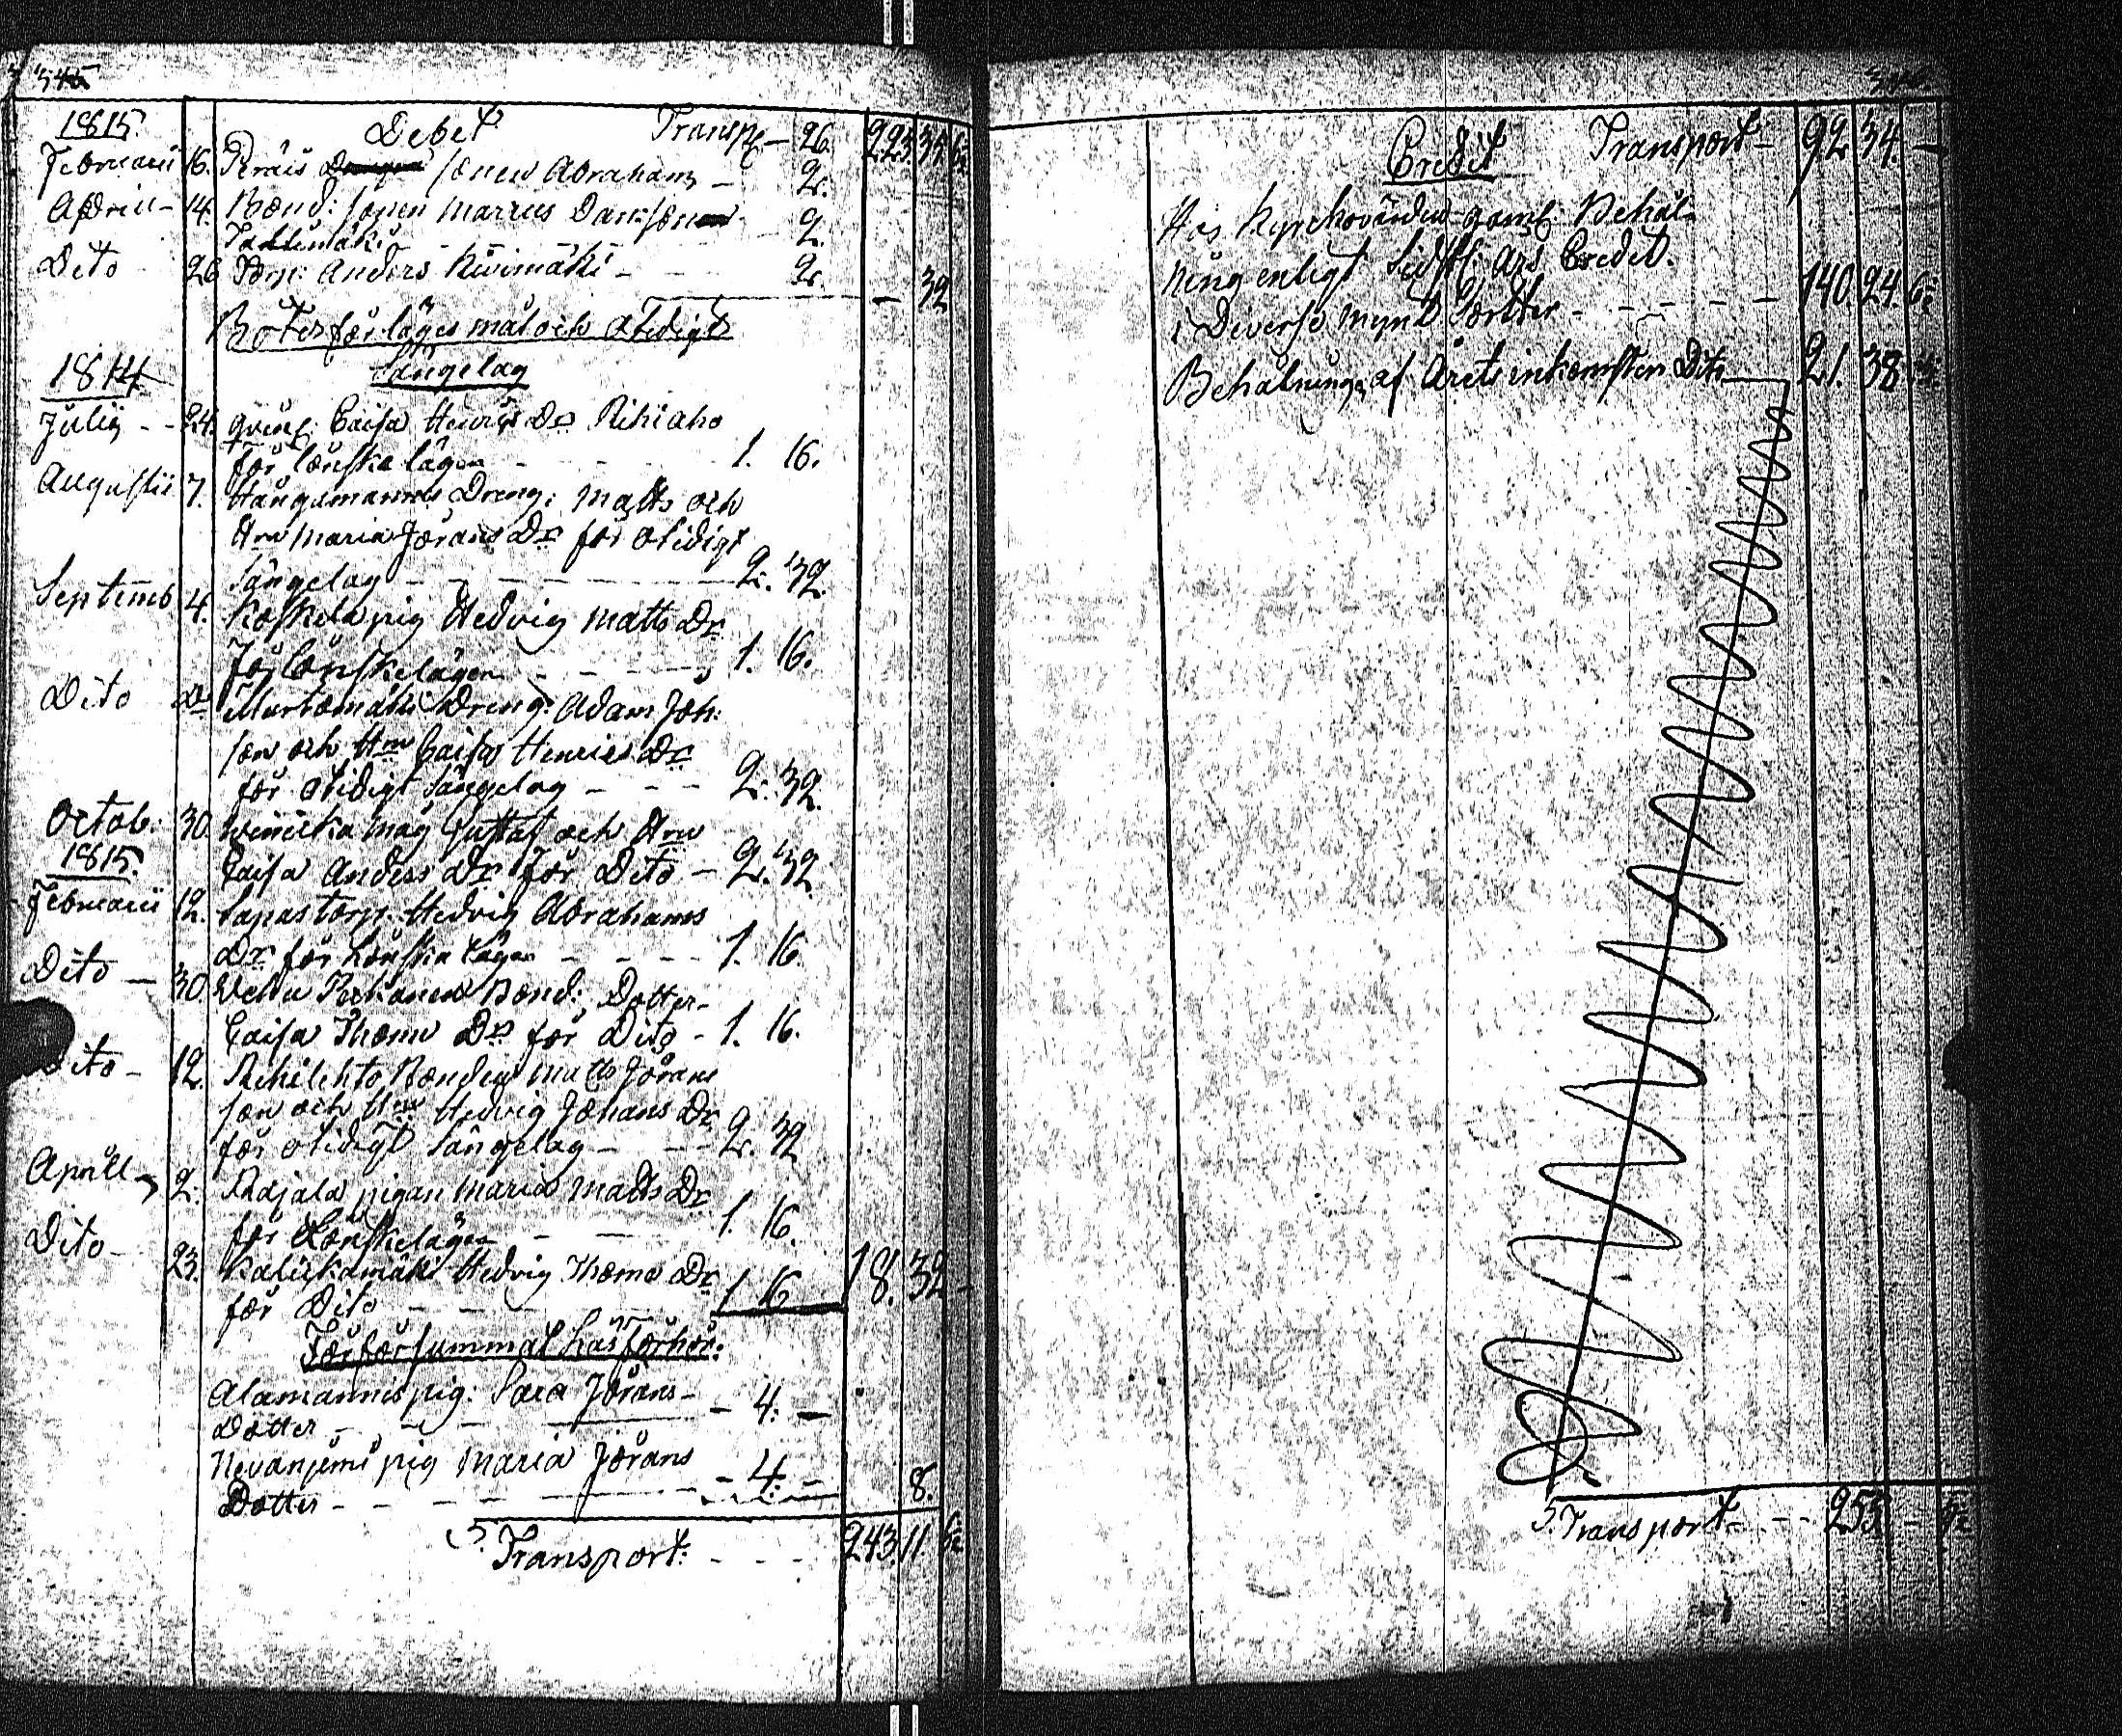 345
1815. Debet Transp. — 26. 223. 35
Februarii 16. Präis sonen Abraham — 2.
April — 14. Bond: sonen Marcus Danj 2.
Dito 26 Torp: Anders Kivimäki — 2. — 32
Böter för lägersmål och otidigt
Sängelag
1814
Julii — 24. qvinf: Caisa Henrics Dr Rihiaho
för lönskeläger — 1. 16.
Augustii 7. Hangasmannis Dreng: Matts och
Hru Maria Jörans Dr för otidigt
Sängelag — 2. 32.
Septemb 4. Koskela pig Hedvig Matts Dr
För lönskeläger — 1. 16.
Dito Do Murtomäki Dreng: Adam Joh:
son och Hru Caisa Henrics Dr
för otidigt Sängelag — 2. 32.
Octob. 30. måg Gustaf och Hru
Caisa Anders Dr för Dito — 2. 32
1815.
Februarii 12. Sapas torp: Hedvig Abrahams
Dr för Lönskeläger — 1. 16.
Dito — 30 Bond: Dotter
Caisa Thoms Dr för Dito — 1. 16.
Dito — 12. Bonden Matts Jörans
son och Hru Hedvig Johans Dr
för otidigt Sängelag — 2. 32
April 2. Radjala pigan Maria Matts Dr
för Lönskeläger — 1. 16.
Dito — 23. Hedvig Thoms Dr
för Dito — 1 16 18. 32
För försummat Läsförhör:
Alamannis pig: Sara Jörans —
Dotter — — 4. —
Nevanperä pig Maria Jörans
Dotter — — 4. — 8.
5. Transport: — 243. 11.
Credit Transport — 92 34. —
Hos Kyrckovärden gaml: Behål-
ning enligt sidstl: års Credit.
i Diverse mynt Sorter — 140. 24.
Behålning af Årets inkomsten Dito 21. 38
5. Transport — 255 —